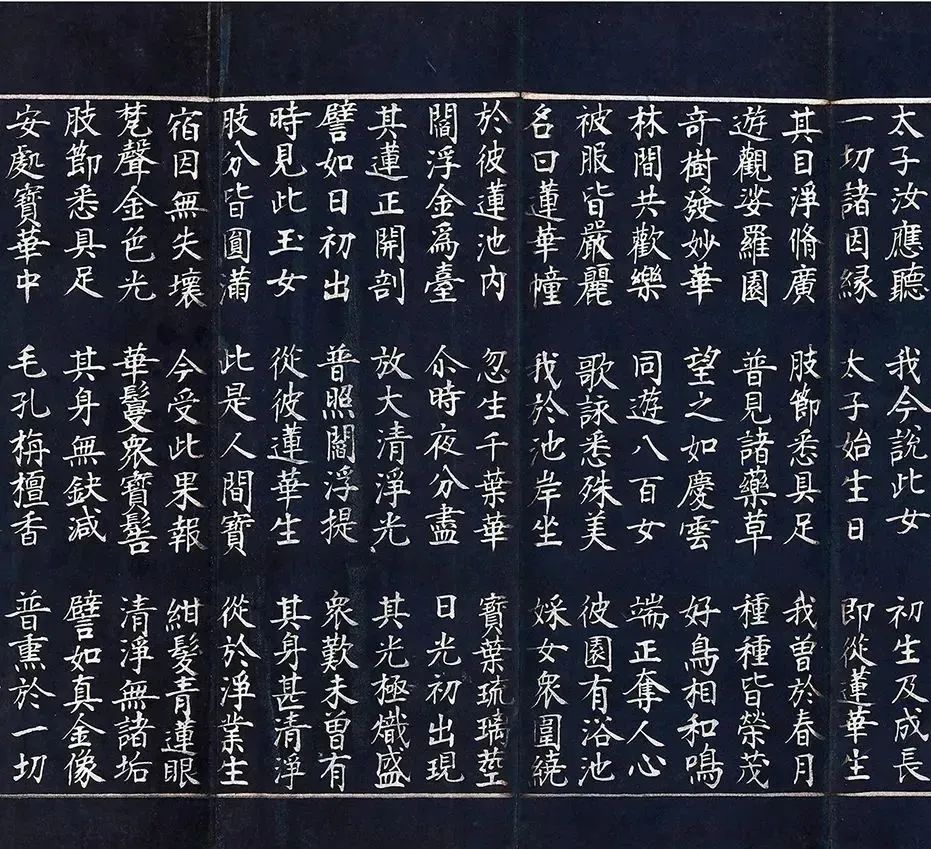 太子汝應聽 我今說此女 初生及成長
一切諸因緣 太子始生日 即從蓮華生
其目淨脩廣 肢節悉具足 我曾於春月
遊觀娑羅園 普見諸藥草 種種皆榮茂
奇樹發妙華 望之如慶雲 好鳥相和鳴
林間共歡樂 同遊八百女 端正奪人心
被服皆嚴麗 歌詠悉殊美 彼園有浴池
名曰蓮華幢 我於池岸坐 婇女眾圍繞
於彼蓮池內 忽生千葉華 寶葉琉璃莖
閻浮金為臺 尒時夜分盡 日光初出現
其蓮正開剖 放大清淨光 其光極熾盛
譬如日初出 普照閻浮提 眾歎未曾有
時見此玉女 從彼蓮華生 其身甚清淨
肢分皆圓滿 此是人間寶 從於淨業生
宿因無失壞 今受此果報 紺髮青蓮眼
梵聲金色光 華鬘眾寶髻 清淨無諸垢
肢節悉具足 其身無缺減 譬如真金像
安處寶華中 毛孔栴檀香 普熏於一切